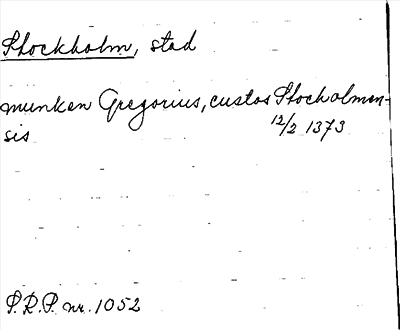 Stockholm, stad
munken Gregorius, custos Stocholmen-
sis
12/2 1373
P.R.P. nr. 1052